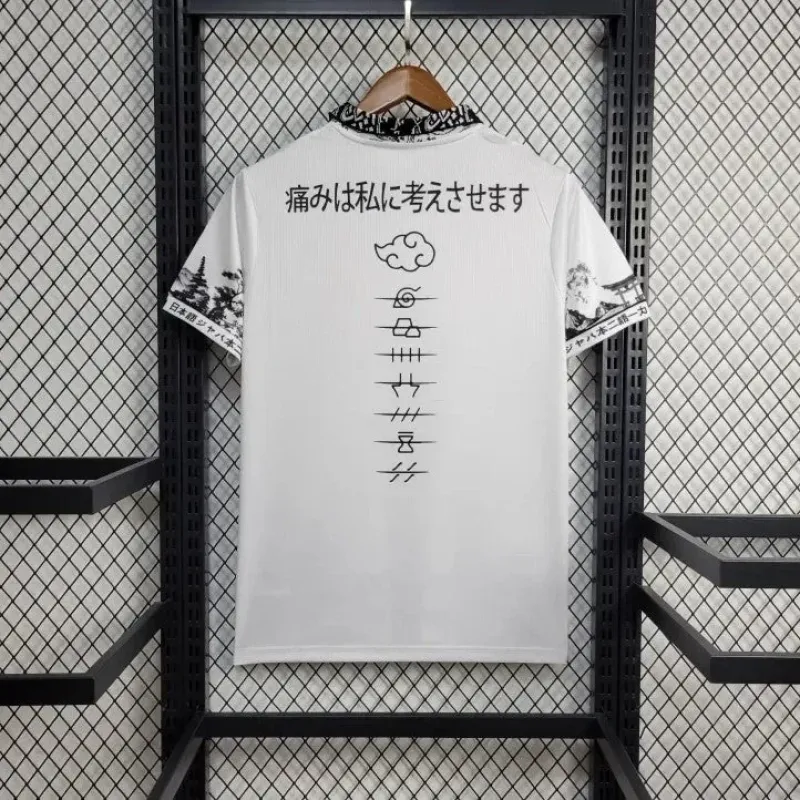 痛みは私に考えさせます
日本語ジャパ本
ジャパ本二語一